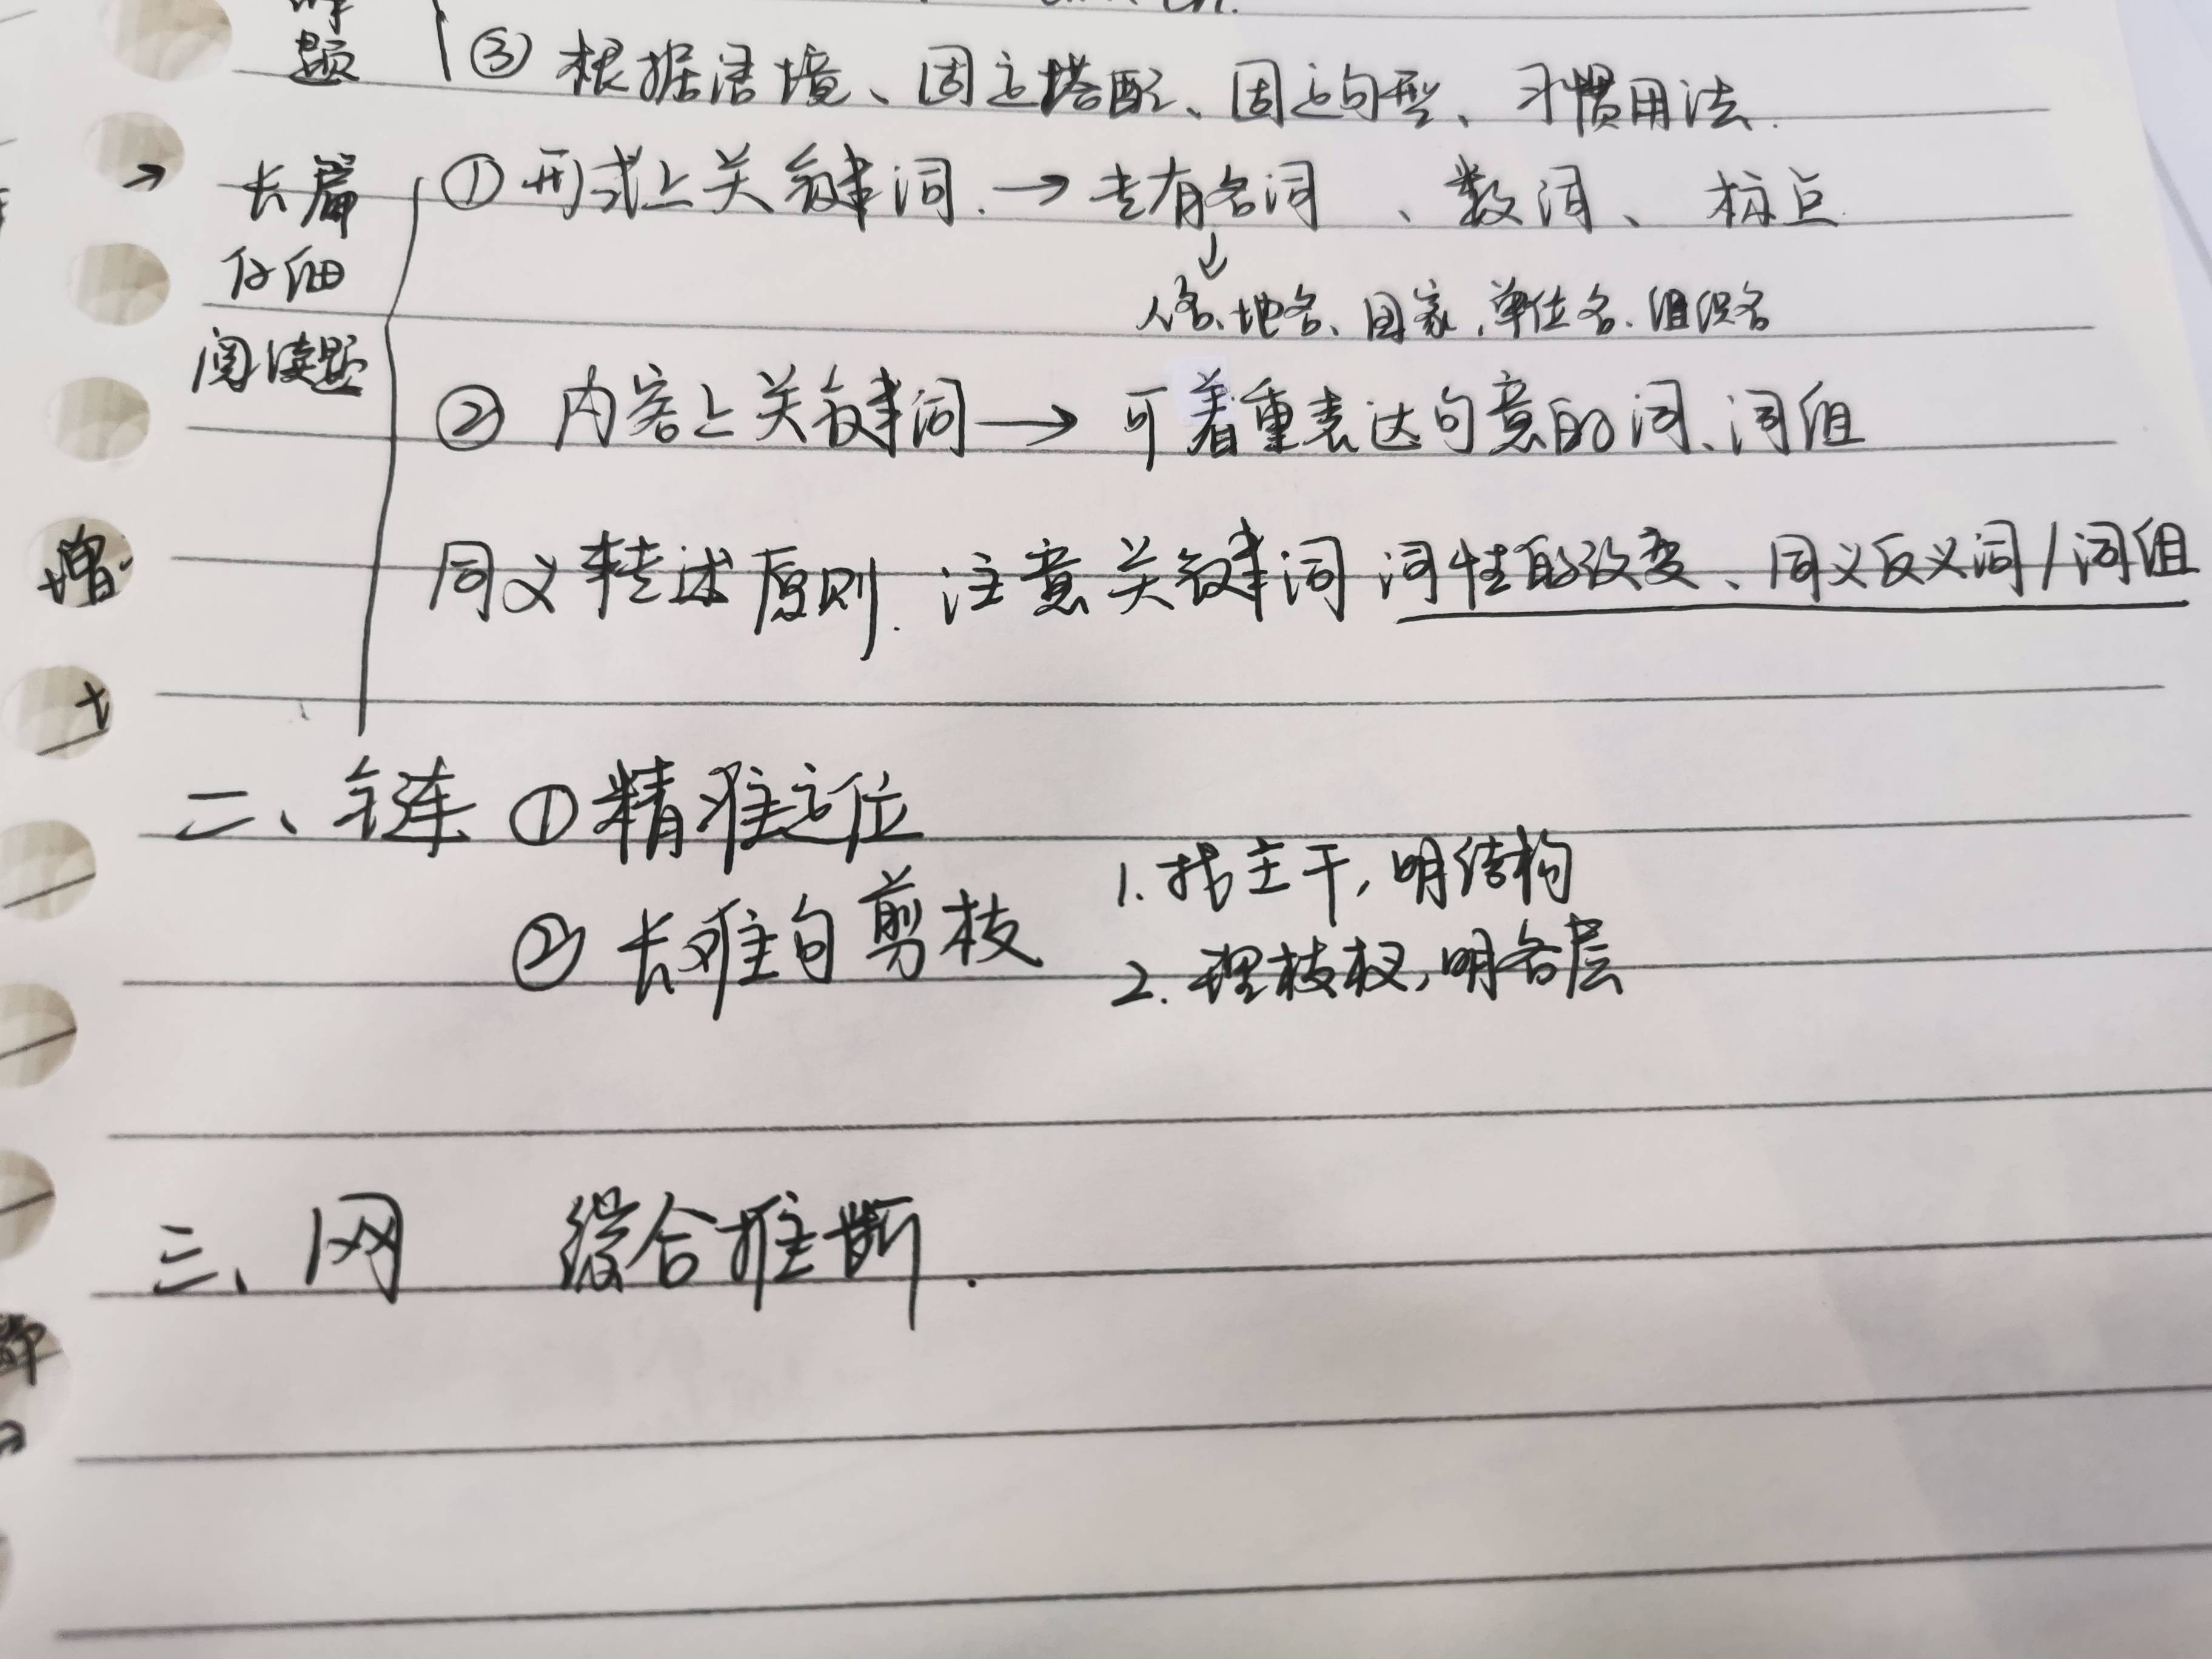 题 ③ 根据语境、固定搭配、固定句型、习惯用法.
→ 长篇 ① 形式上关键词. → 专有名词、数词、标点
仔细
↓
人名、地名、国家、单位名、组织名
阅读题
② 内容上关键词 → 可着重表达句意的词、词组
增
同义转述原则. 注意关键词 词性的改变、同义反义词/词组
二、链 ① 精准定位
1. 找主干, 明结构
② 长难句剪枝
2. 理枝杈, 明各层
三、网 综合推断.